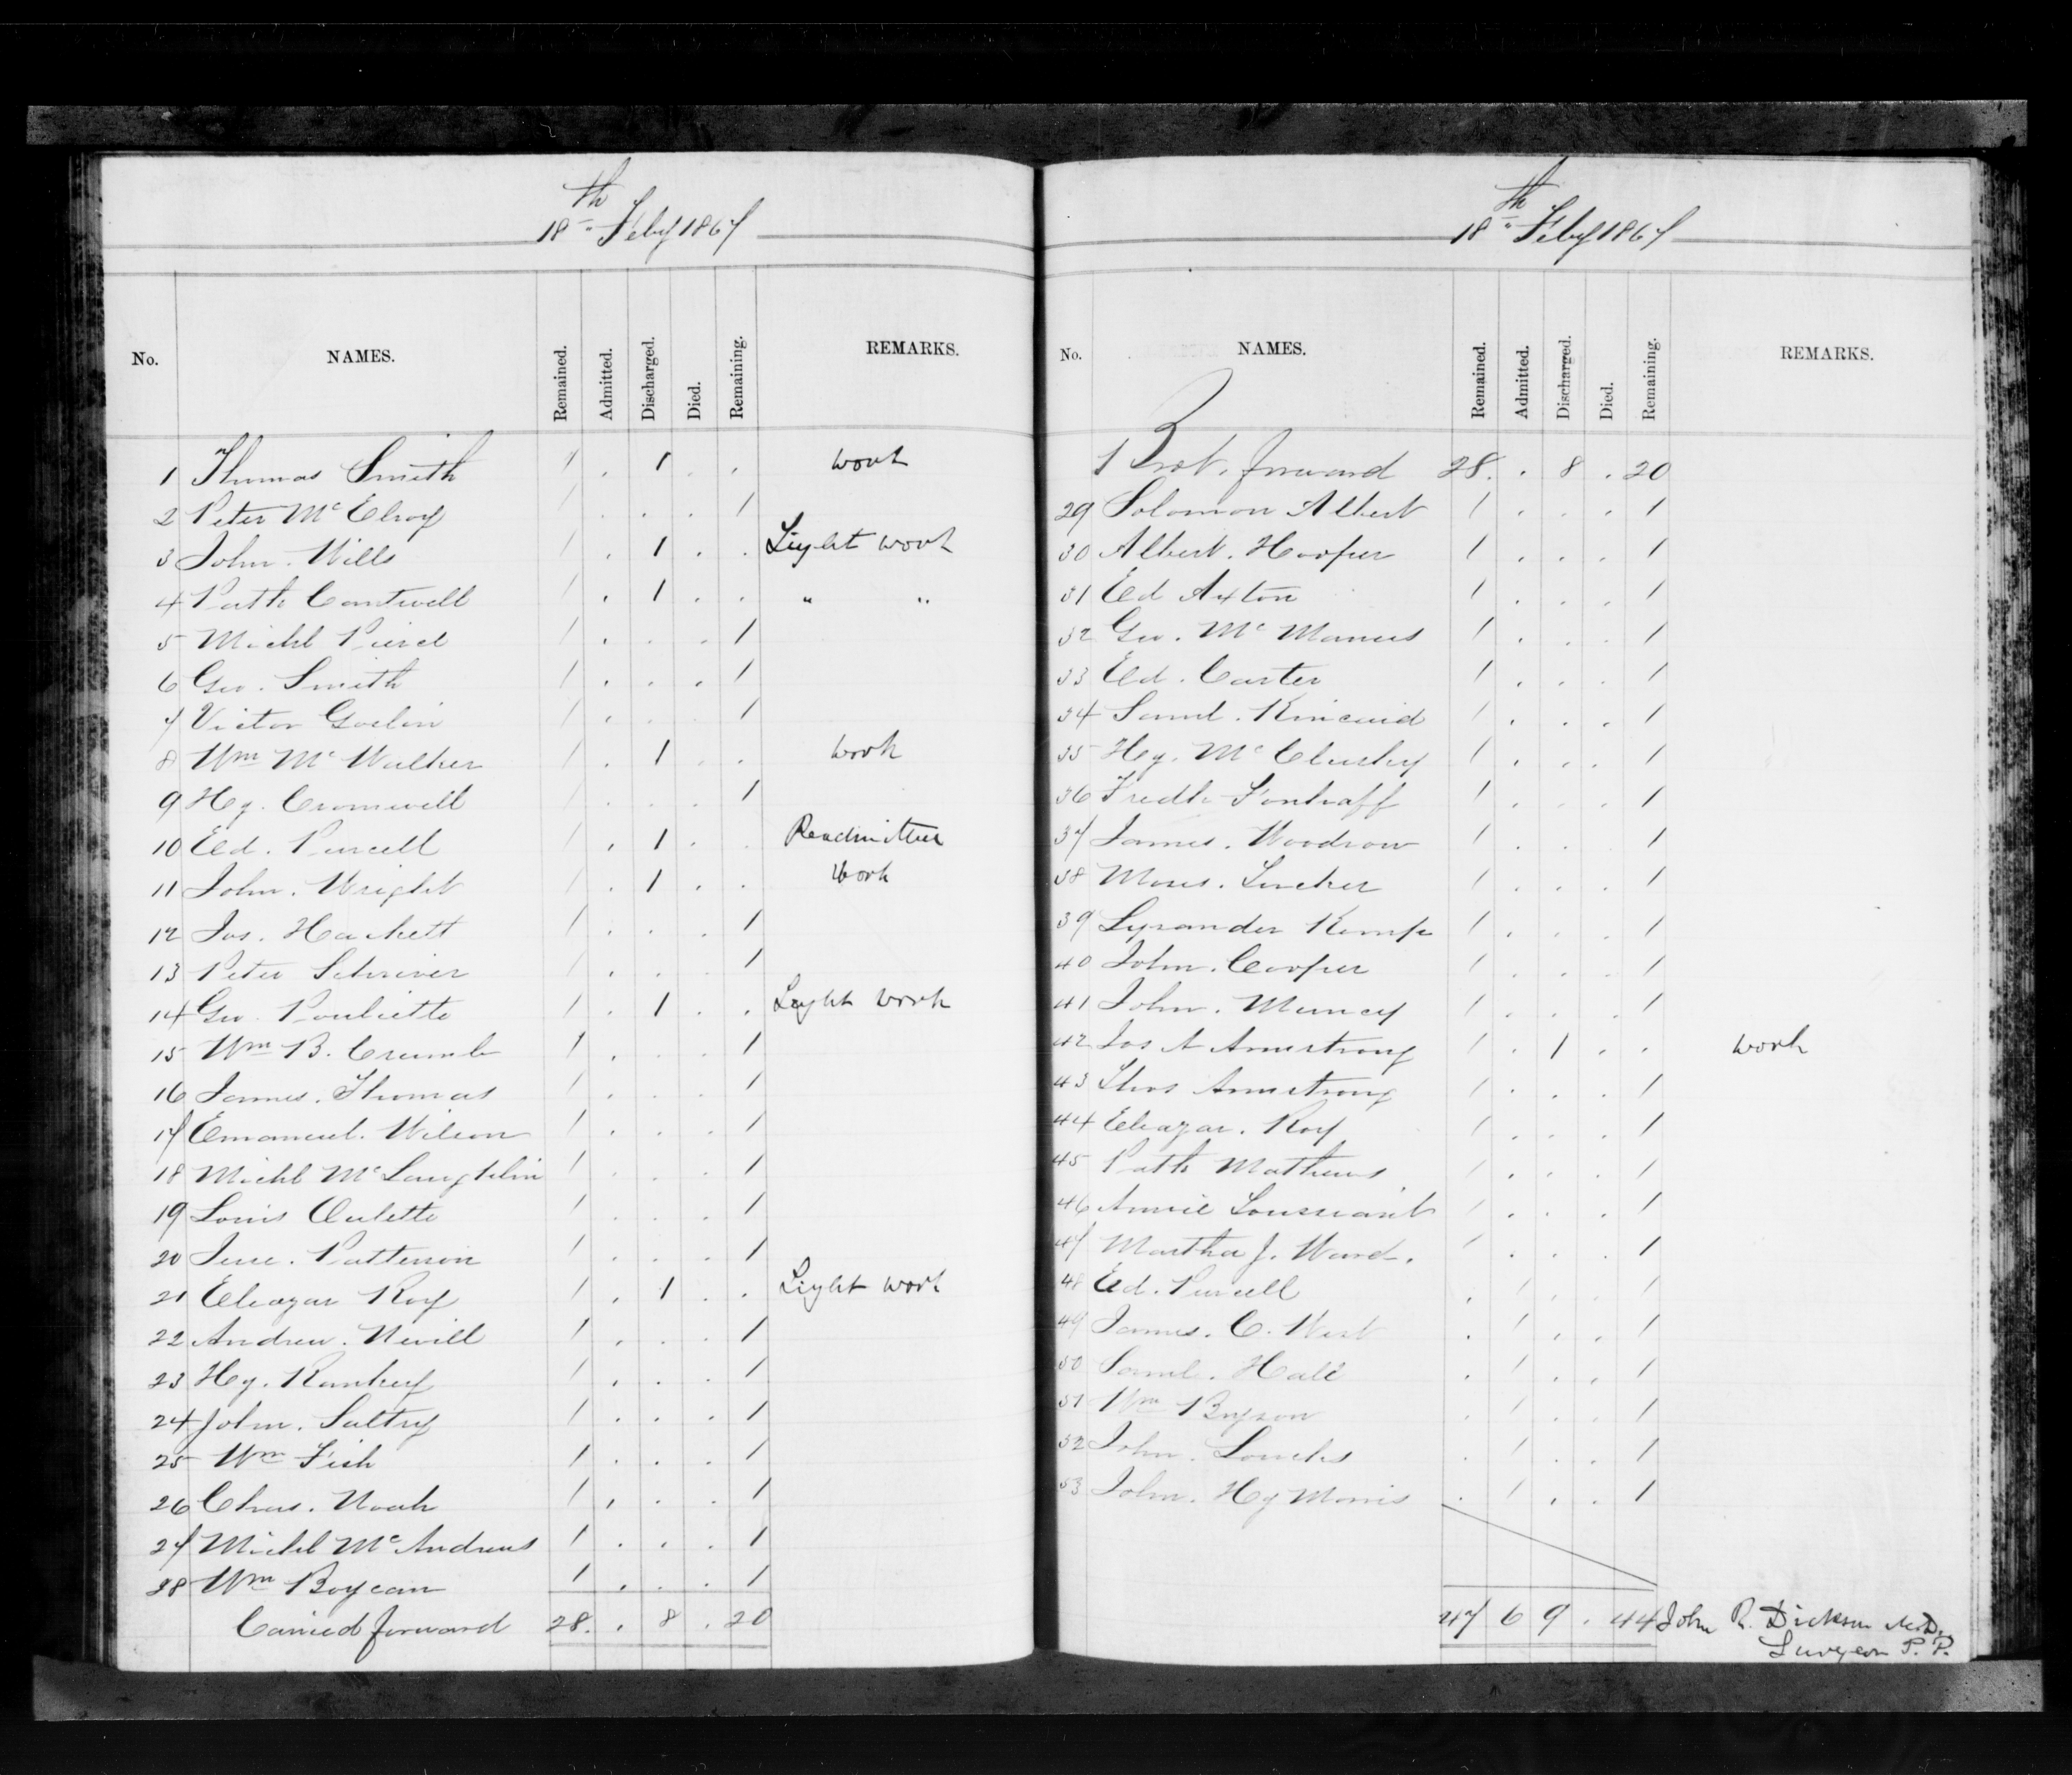 18th Feby 1867
No. NAMES. Remained. Admitted. Discharged. Died. Remaining. REMARKS.
1 Thomas Smith 1 . 1 . . work
2 Peter McElroy 1 . . . 1
3 John. Wills 1 . 1 . . Light work
4 Patk Cantwell 1 . 1 . . " "
5 Michl 1 . . . 1
6 Geo. Smith 1 . . . 1
7 Victor 1 . . . 1
8 Wm McWalker 1 . 1 . . work
9 Hy. Cromwell 1 . . . 1
10 Ed. Purcell 1 . 1 . . Readmitted
11 John. Wright 1 . 1 . . work
12 Jos. Hackett 1 . . . 1
13 Peter Schriver 1 . . . 1
14 Geo. 1 . 1 . . Light work
15 Wm B. Crumb 1 . . . 1
16 James. Thomas 1 . . . 1
17 Emanuel. Wilson 1 . . . 1
18 Michl McLaughlin 1 . . . 1
19 Louis Oulette 1 . . . 1
20 Jesse. Patterson 1 . . . 1
21 Eleazar Roy 1 . 1 . . Light work
22 Andrew. Nevill 1 . . . 1
23 Hy. Rankey 1 . . . 1
24 John. Saltry 1 . . . 1
25 Wm Fish 1 . . . 1
26 Chas. Noah 1 . . . 1
27 Michl McAndrews 1 . . . 1
28 Wm Boycan 1 . . . 1
Carried forward 28 . 8 . 20
18th Feby 1867
No. NAMES. Remained. Admitted. Discharged. Died. Remaining. REMARKS.
Brot. forward 28 . 8 . 20
29 Solomon Albert 1 . . . 1
30 Albert. Hooper 1 . . . 1
31 Ed Axton 1 . . . 1
32 Geo. McManus 1 . . . 1
33 Ed. Carter 1 . . . 1
34 Saml. Kincaid 1 . . . 1
35 Hy. McClusky 1 . . . 1
36 Fredk 1 . . . 1
37 James. Woodrow 1 . . . 1
38 Moses. 1 . . . 1
39 Lysander Kemp 1 . . . 1
40 John. Cooper 1 . . . 1
41 John. Muncey 1 . . . 1
42 Jos A Armstrong 1 . 1 . . work
43 Thos Armstrong 1 . . . 1
44 Eleazar. Roy 1 . . . 1
45 Patk Mathews 1 . . . 1
46 Annie Toussaint 1 . . . 1
47 Martha J. Ward. 1 . . . 1
48 Ed. Purcell . 1 . . 1
49 James. C. West . 1 . . 1
50 Saml. Hall . 1 . . 1
51 Wm Bryson . 1 . . 1
52 John. Loucks . 1 . . 1
53 John. Hy Morris . 1 . . 1
47 6 9 . 44 John R. Dickson M.D.
Surgeon P. P.